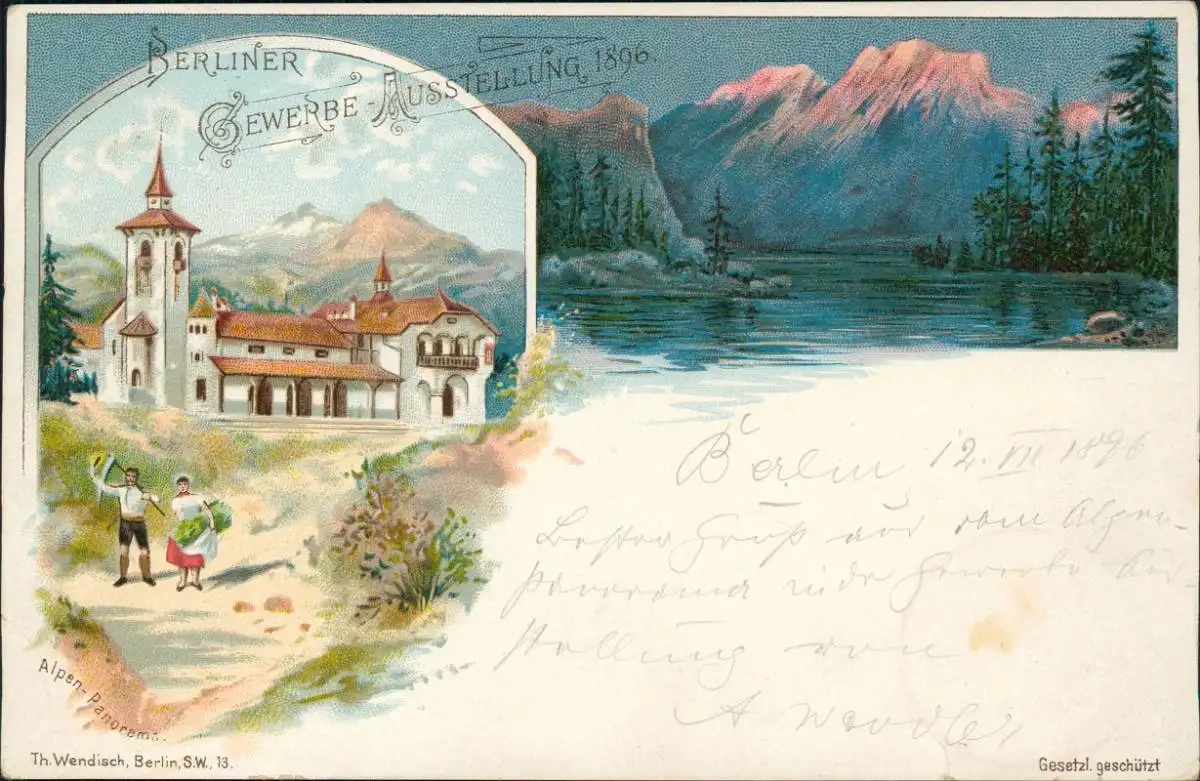 BERLINER
GEWERBE-AUSSTELLUNG 1896.
Berlin 12. VII 1896
Besten Gruß aus dem Alpen-
panorama in der Gewerbe Aus-
stellung von
A
Alpen-Panorama.
Th. Wendisch, Berlin, S.W., 13.
Gesetzl. geschützt